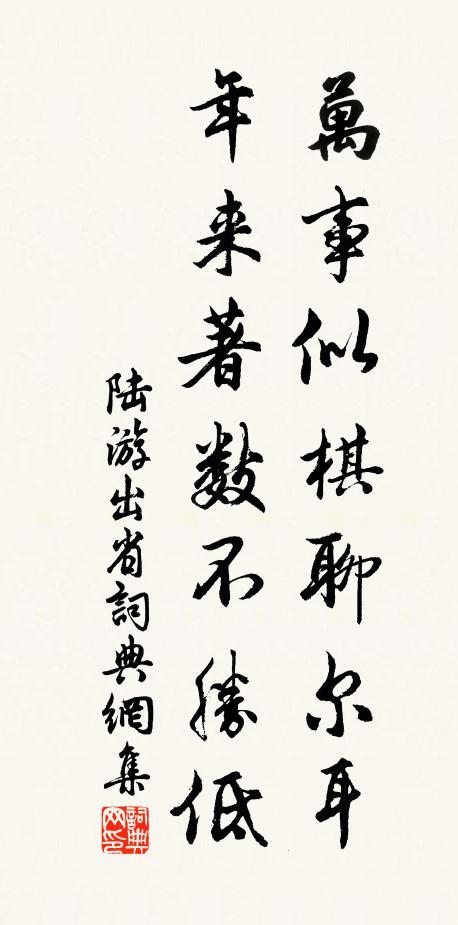 萬事似棋聊尔耳
年来著數不勝低
陆游出省詞典網集
詞典網印